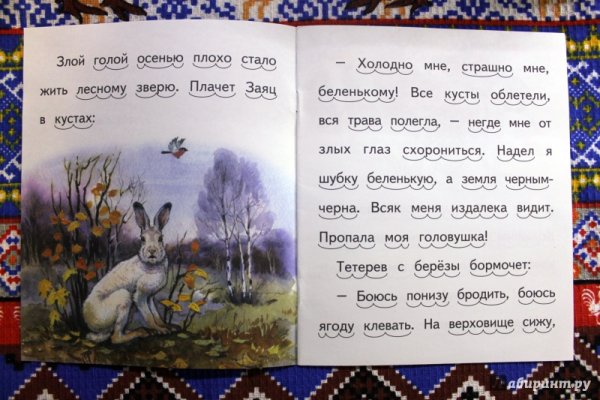 Злой голой осенью плохо стало
жить лесному зверю. Плачет Заяц
в кустах:
— Холодно мне, страшно мне,
беленькому! Все кусты облетели,
вся трава полегла, — негде мне от
злых глаз схорониться. Надел я
шубку беленькую, а земля черным-
черна. Всяк меня издалека видит.
Пропала моя головушка!
Тетерев с берёзы бормочет:
— Боюсь понизу бродить, боюсь
ягоду клевать. На верховище сижу,
Лабиринт.ру